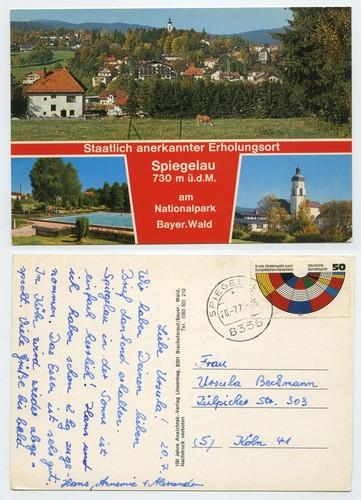 Staatlich anerkannter Erholungsort
Spiegelau
730 m ü.d.M.
am
Nationalpark
Bayer.Wald
Liebe Ursula! 20.7.
Wir haben Deinen lieben
Brief dankend erhalten.
Spiegelau in der Sonne ist
einfach herrlich! Hans und
ich haben schon 2 kg zuge-
nommen. Das Essen ist sehr gut.
In Köln wird wieder abge-
speckt. Viele Grüße bis bald
Hans, Annemie + Alexander
100 Jahre Ansichtsk.-Verlag Löwenhag, 8391 Bischofsreut/Bayer. Wald,
Nachdruck verboten
Erste Direktwahl zum
Europäischen Parlament
Deutsche
Bundespost
50
SPIEGELAU
8356
Frau
Ursula Beckmann
Zülpicher Str. 303
(5) Köln 41